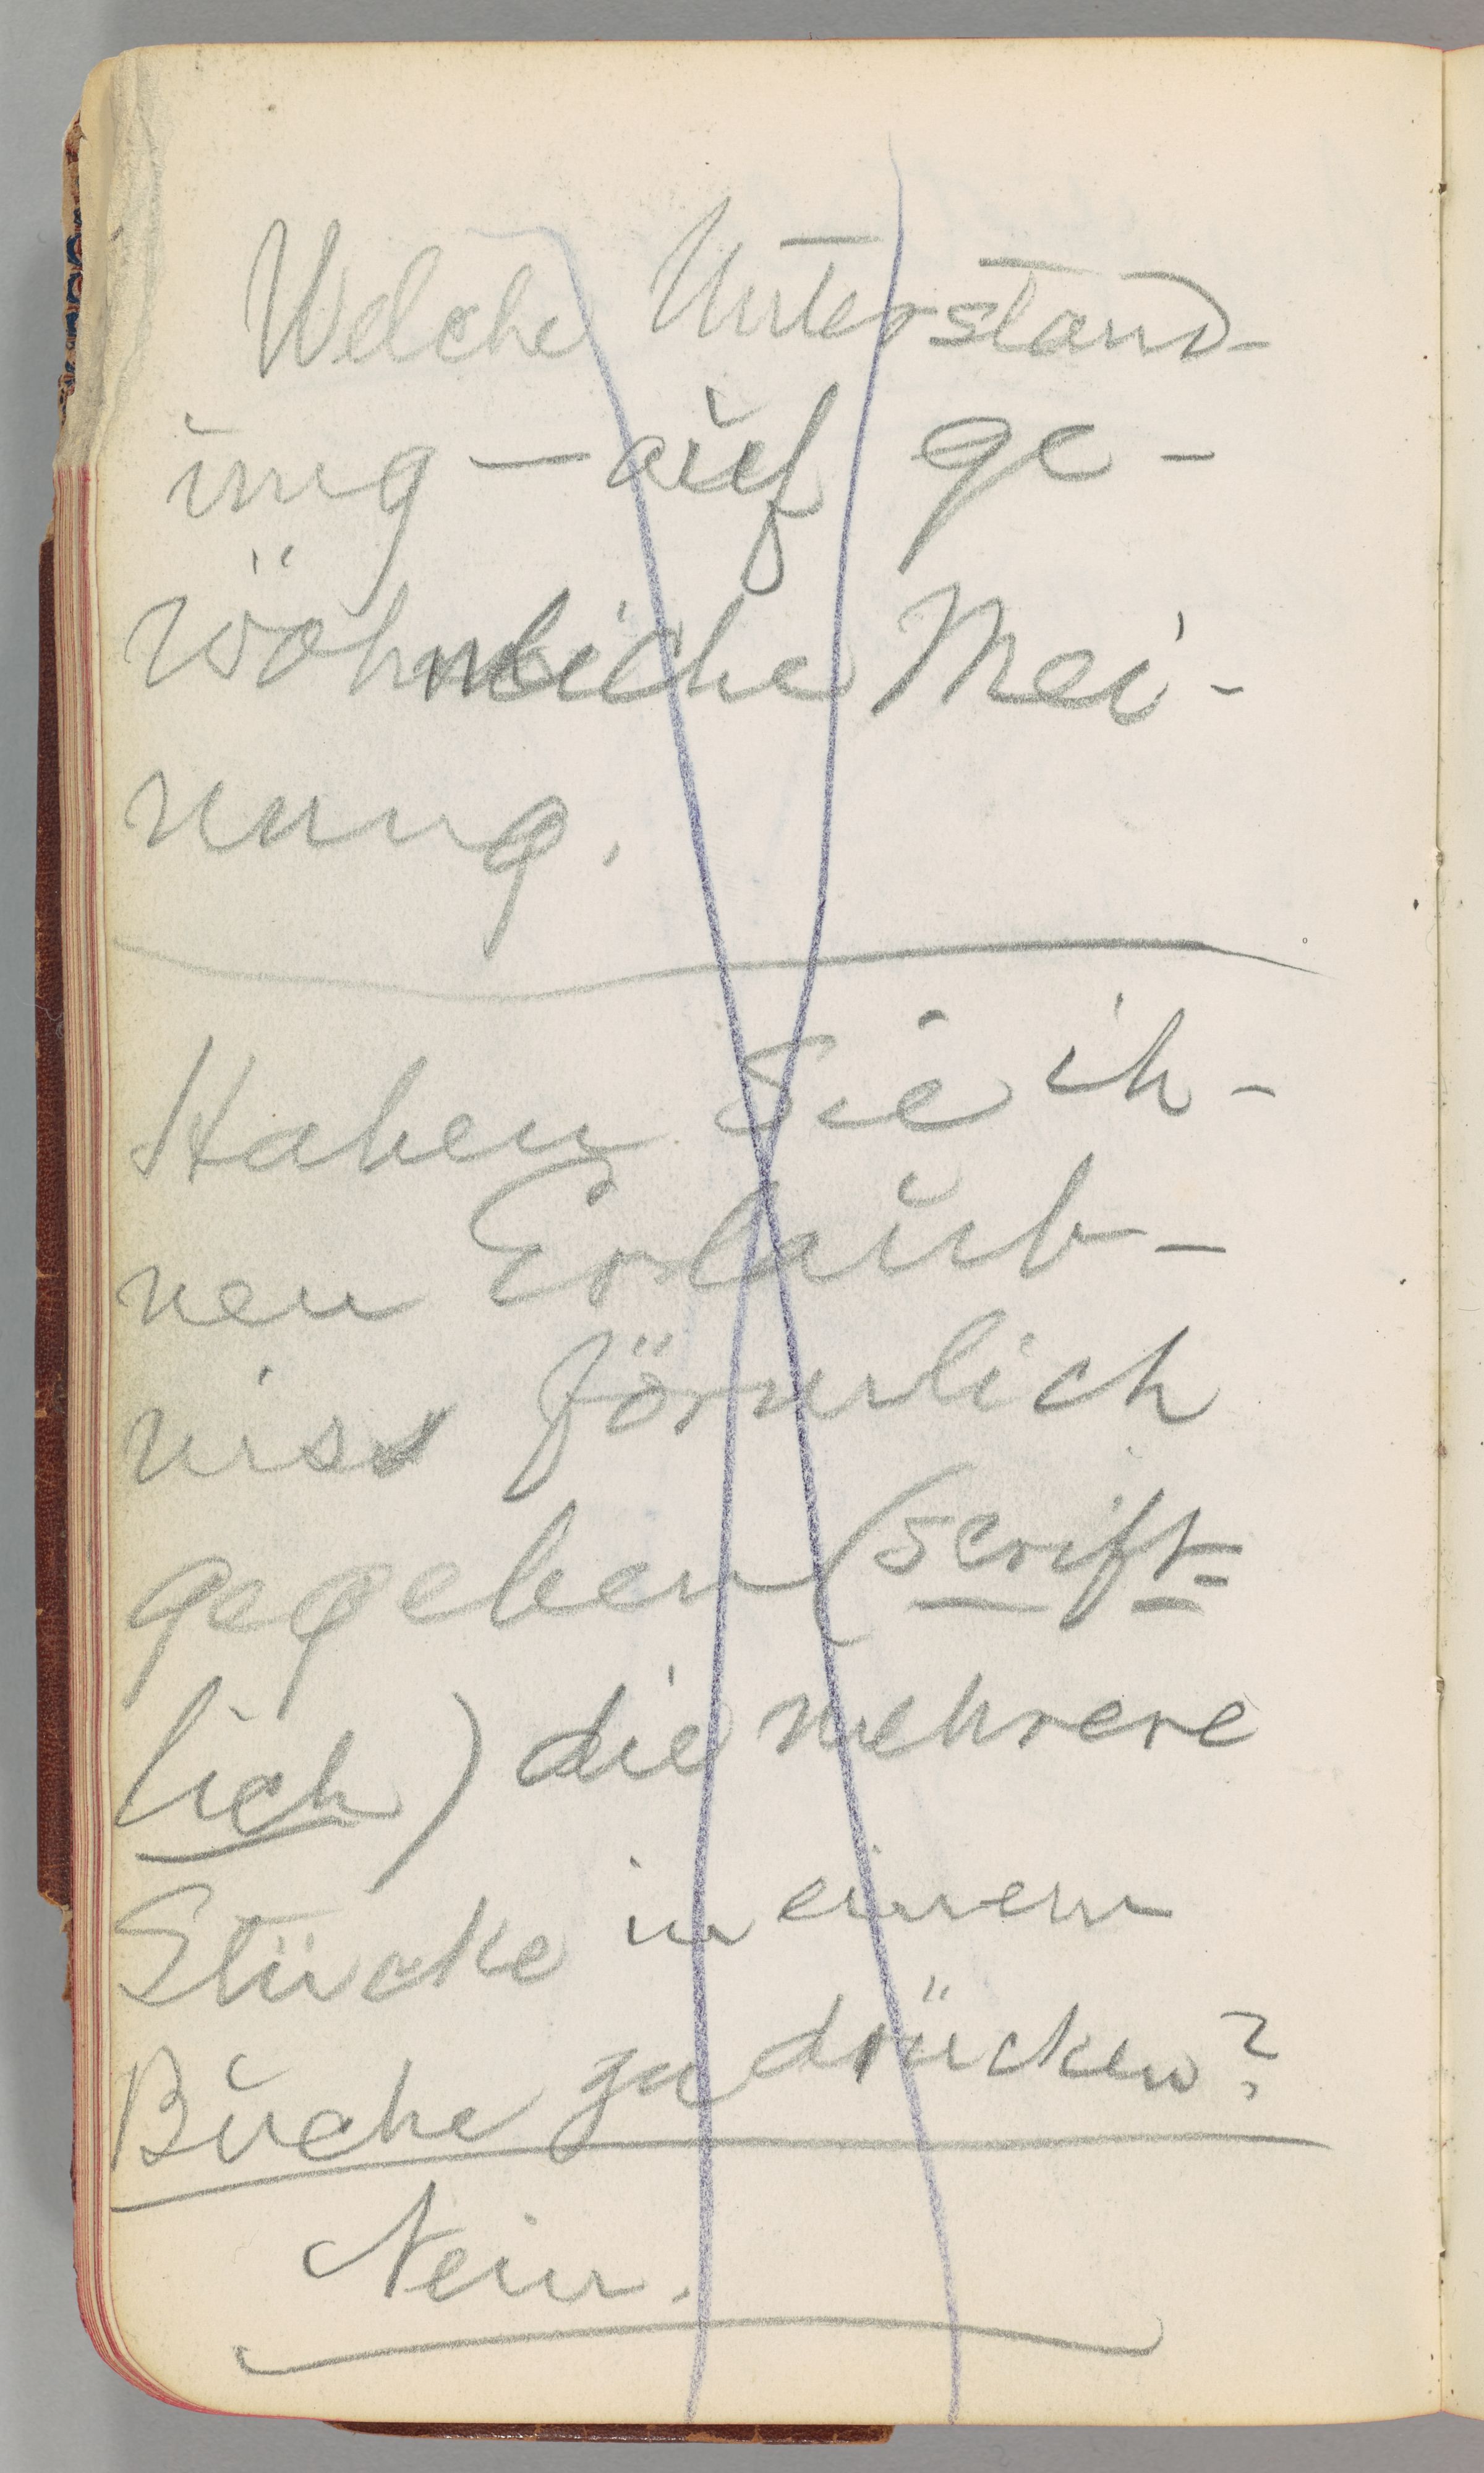 Welche Unterstand-
ung — auf ge-
wöhnliche Mei-
nung.
Haben Sie ih-
nen Erlaub-
niss förmlich
gegeben (scrift-
lich) die mehrere
Stücke in einem
Buche zu drücken?
Nein.